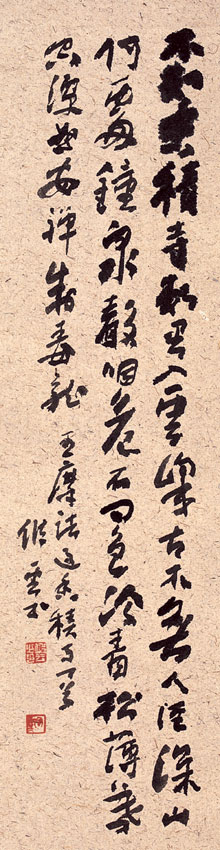 不知香積寺數里入雲峯古木無人徑深山
何處鐘泉聲咽危石日色冷青松薄暮
空潭曲安禪制毒龍 王摩詰過香積寺一首
雲書